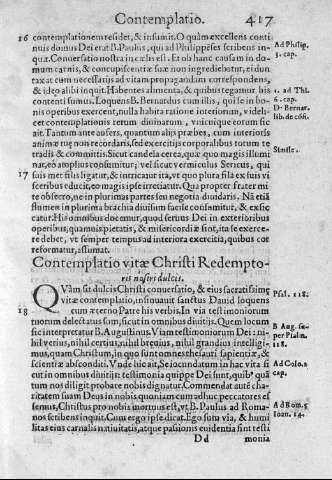 Contemplatio. 417
16 contemplationem residet, & insumit. O quàm excellens conti
nuis domus Dei erat B. Paulus, qui ad Philippéses scribens in-
quit. Conuersatio nostra in cælis est. Et ob hanc causam in do
mum carnis, & concupiscentiæ suæ non ingrediebatur, ei dun
taxat cum necessarijs ad vitam propagandam correspondens,
& ideo alibi inquit. Habentes alimenta, & quibus tegamur his
contenti sumus. Loquens B. Bernardus cum illis, qui se in bo-
nis operibus exercent, nulla habita ratione interiorum, vide li-
cet contemplationis rerum diuinarum, vnicuique eorum sic
ait. Tantum aute ausers, quantum alijs præbes, cum interiotis
animæ tuæ non recordaris, sed exercitijs corporalibus totum te
tradis & committis. Sicut candela cerea, quæ quo magis illumi
nat, eo amplius consumitur; vel sicut vermiculus Sericus, qui
17 suis met filis ligatur, & intricatur ita, vt quo plura fila ex suis vi
sceribus educit, eo magis ipse irretiatur. Qua propter frater mi
te obsecro, ne in plurimas partes seu negotia diuidaris. Nã etiã
flumen in plurima brachia diuisum facile consumitur, & exsic
catur. His omnibus docemur, quod seruus Dei in exterioribus
operibus, quamuis pietatis, & misericordiæ sint, ita se exerce-
re debet, vt semper tempus ad interiora exercitia, quibus cor
reformatur, assumat.
Contemplatio vitæ Christi Redempto-
ris nostri dulcis.
QVàm sit dulcis Christi conuersatio, & eius sacratissimę
vitæ contemplatio, insinuauit sanctus Dauid loquens
18 cum æterno Patre his verbis. In via testimoniorum
tuorum delectatus sum, sicut in omnibus diuitijs. Quem locum
sic interpretatur B. Augustinus. Viam testimoniorum Dei: ni-
hil verius, nihil certius, nihil breuius, nihil grandius intelligi-
mus, quam Christum, in quo sunt omnes thesauri sapientiæ, &
scientiæ absconditi. Vnde hic ait, Se iocundatum in hac vita si
cut in omnibus diuitijs: testimonia quippe Dei sunt, quib⁹ quã
tum nos diligat probare nobis dignatur. Commendat autẽ cha-
ritatem suam Deus in nobis quoniam cum adhuc peccatores es
semus, Christus pro nobis mortuus est, vt B. Paulus ad Roma-
nos scribens inquit. Cum ergo ipse dicat. Ego sum via, & humi
litas eius carnalis natiuitatis, atque pasionis euidentia sint testi
Dd monia
Ad Philip.
3. cap.
1. ad Thi.
6. cap.
D. Bernar.
lib. de cósi.
Simile.
Psal. 118.
B. Aug. su-
per Psalm.
118.
Ad Colo. 2
cap.
Ad Rom. 5
Ioan. 14.